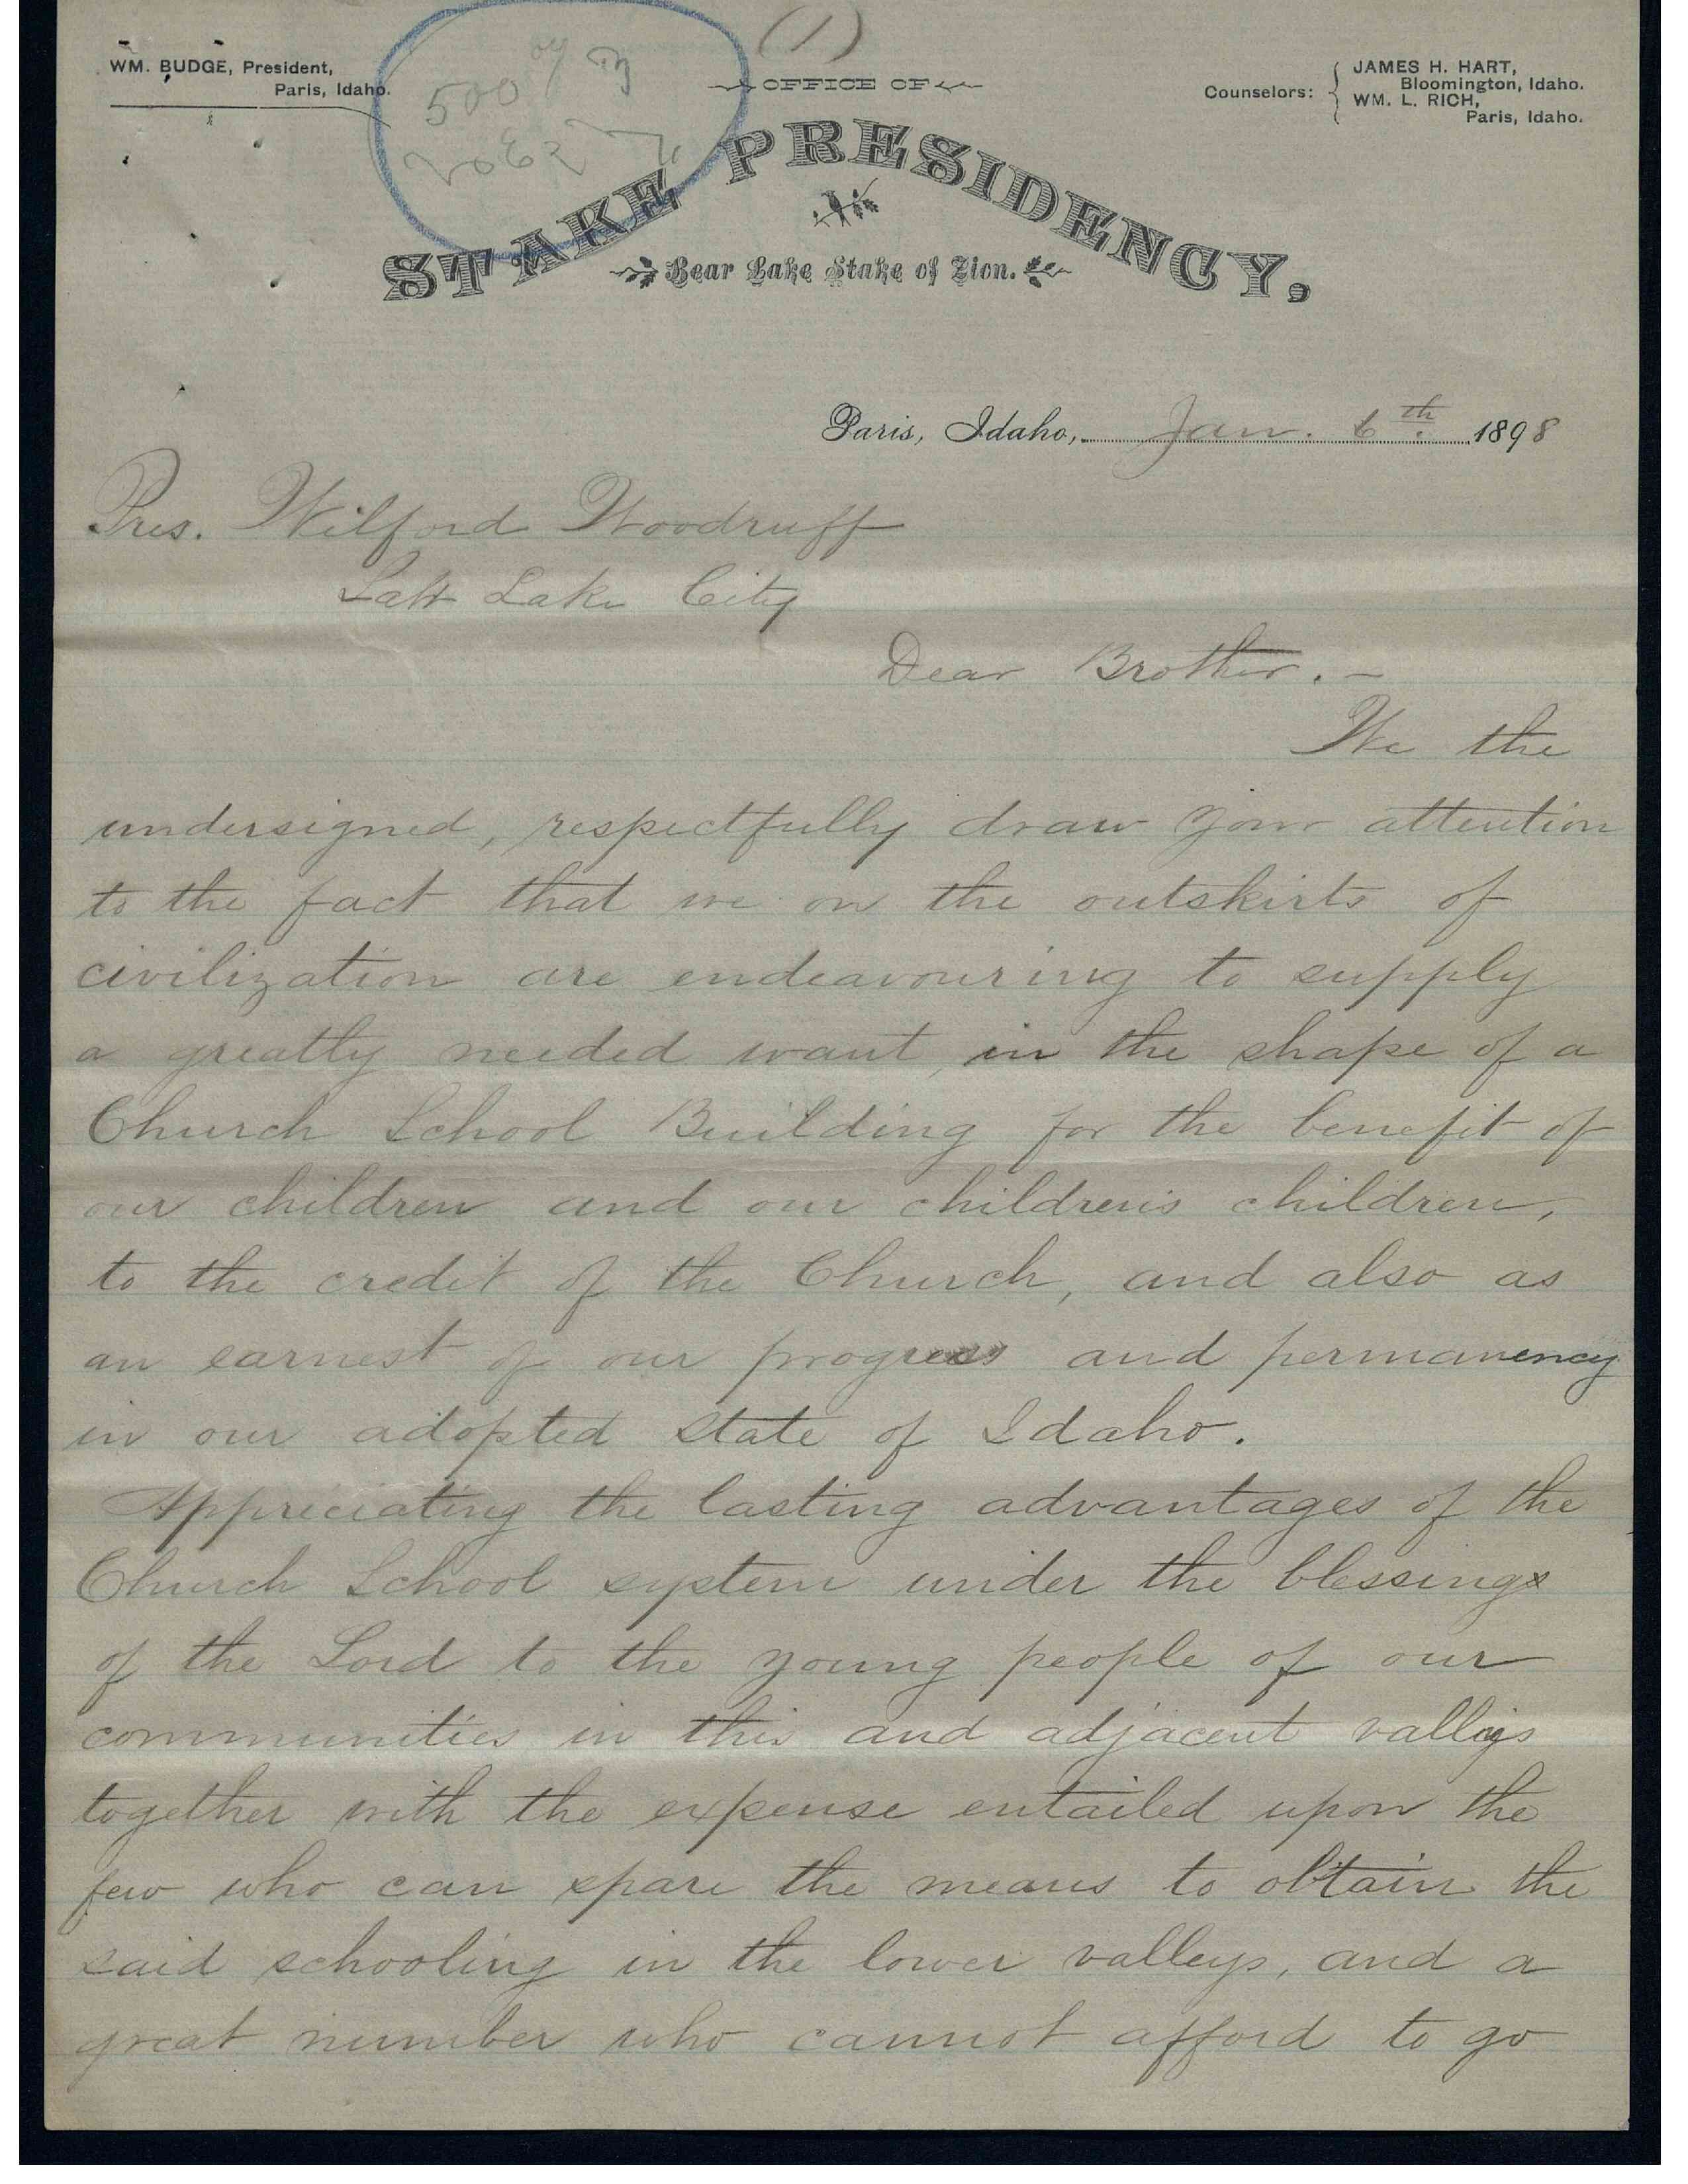 (1)
WM. BUDGE, President,
Paris, Idaho.
500
OFFICE OF
Counselors: { JAMES H. HART,
Bloomington, Idaho.
WM. L. RICH,
Paris, Idaho.
STAKE PRESIDENCY,
Bear Lake Stake of Zion.
Paris, Idaho, Jan. 6th. 1898
Pres. Wilford Woodruff
Salt Lake City
Dear Brother. –
We the
undersigned, respectfully draw your attention
to the fact that we on the outskirts of
civilization are endeavouring to supply
a greatly needed want, in the shape of a
Church School Building for the benefit of
our children and our children's children,
to the credit of the Church, and also as
an earnest of our progress and permanency
in our adopted State of Idaho.
Appreciating the lasting advantages of the
Church School system under the blessings
of the Lord to the young people of our
communities in this and adjacent valleys
together with the expense entailed upon the
few who can spare the means to obtain the
said schooling in the lower valleys, and a
great number who cannot afford to go